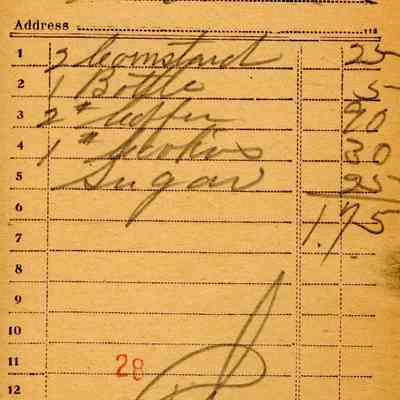 Address
1 2 Cornstarch 25
2 1 Bottle 5
3 2 # Coffee 90
4 1 # Cookies 30
5 Sugar 25
6 1.75
7
8
9
10
11 28
12